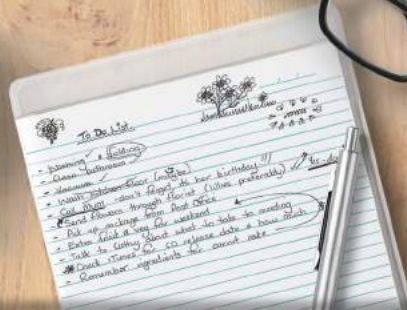 To Do List
- washing & folding
- Clean bathrooms
- Vacuum
- Wash kitchen floor (maybe)
- Call Mum - don't forget its her birthday!!
- Send flowers through florist (lillies preferably) Yes - do
- Pick up package from Post Office
- Extra fruit & veg for weekend
- Talk to Cathy about what to take to meeting
- Check iTunes for CD release date & how much
- Remember ingredients for carrot cake